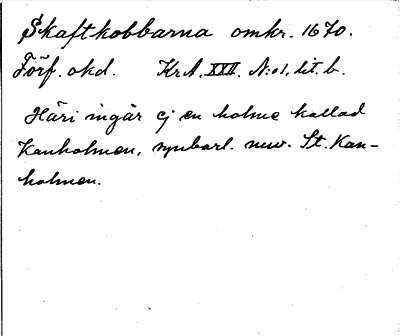 Skaftkobbarna omkr. 1670.
Förf. okd. KrA. XXII. N:o 1, lit. b.
Häri ingår ej en holme kallad
Kanholmen, synbarl. nuv. St. Kan-
holmen.